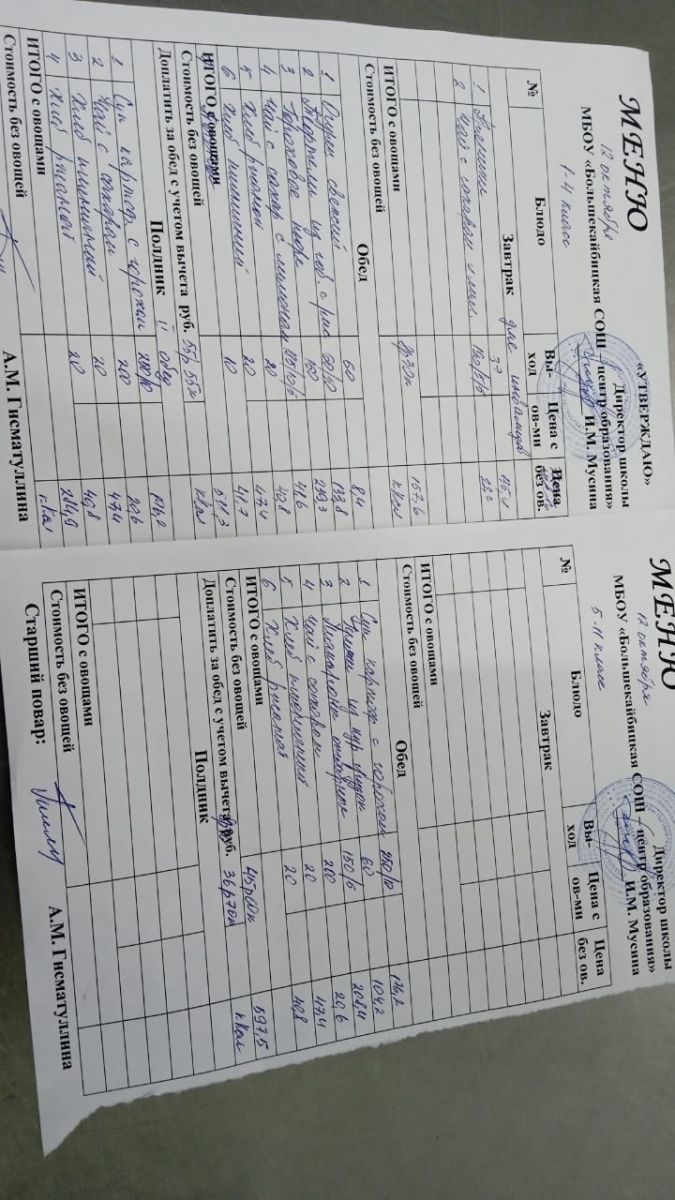 «УТВЕРЖДАЮ»
Директор школы
МБОУ «Большекайбицкая СОШ – центр образования»
И.М. Мусина
МЕНЮ
12 октября
1-4 класс
№ Блюдо Вы-ход Цена с ов-ми Цена без ов.
Завтрак для инвалидов
1
2 Чай с сахаром
ИТОГО с овощами 157,6
Стоимость без овощей ккал
Обед
1 Огурец свежий 60 8,4
2 133,8
3 Гороховое пюре 150 239,3
4 Чай с сахар. с лимоном 41,6
5 Хлеб ржаной 20 40,8
6 Хлеб пшеничный 10 47,4
ИТОГО с овощами
Стоимость без овощей ккал
Доплатить за обед с учетом вычета руб. 55р 55к
Полдник II обед
1 Суп картоф. с горохом 200/10
2 Чай с сахаром 200 29,6
3 Хлеб пшеничный 20 47,4
4 Хлеб ржаной 20 40,8
ИТОГО с овощами
Стоимость без овощей ккал
А.М. Гисматуллина
Директор школы
МБОУ «Большекайбицкая СОШ – центр образования»
И.М. Мусина
МЕНЮ
12 октября
5-11 класс
№ Блюдо Вы-ход Цена с ов-ми Цена без ов.
Завтрак
ИТОГО с овощами
Стоимость без овощей
Обед
1 Суп картоф. с горохом 250/10 136,2
2 60 104,2
3 Макароны отварные 150/5 208,4
4 Чай с сахаром 200 29,6
5 Хлеб пшеничный 20 47,4
6 Хлеб ржаной 20 40,8
ИТОГО с овощами 597,5
Стоимость без овощей 45р00к ккал
Доплатить за обед с учетом вычета руб. 36р70к
Полдник
ИТОГО с овощами
Стоимость без овощей
Старший повар: А.М. Гисматуллина